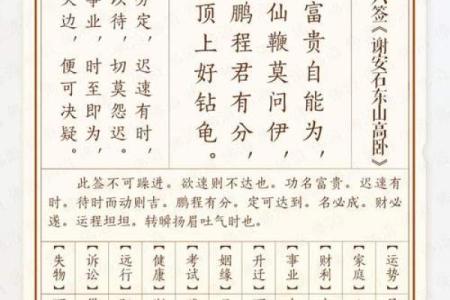 签《谢安石东山高卧》
富贵自能为，
仙鞭莫问伊，
鹏程君有分，
顶上好钻龟。
分定，迟速有时，
以待，切莫怨迟。
事业，时至即为，
边，便可决疑。
此签不可躁进。欲速则不达也。功名富贵。迟速有
时。待时而动则吉。鹏程有分。定可达到。名必成。财必
遂。运程坦坦。转瞬扬眉吐气时也。
【运势】
【家庭】
【财利】
【事业】
【升迁】
【姻缘】
【考试】
【健康】
【远行】
【诉讼】
【失物】